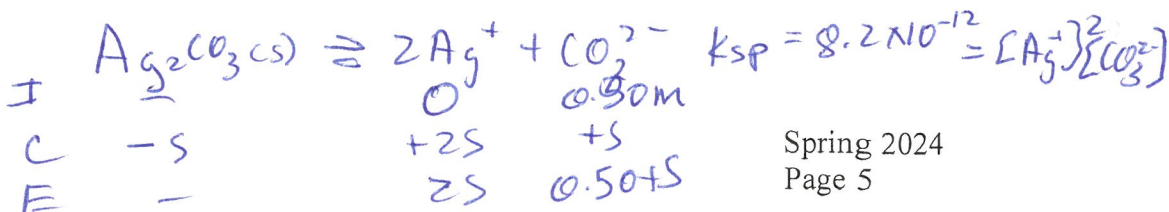 Ag₂CO₃(s) ⇌ 2Ag⁺ + CO₃²⁻ Ksp = 8.2×10⁻¹² = [Ag⁺]²[CO₃²⁻]
I — 0 0.50M
C -S +2S +S
E — 2S 0.50+S
Spring 2024
Page 5